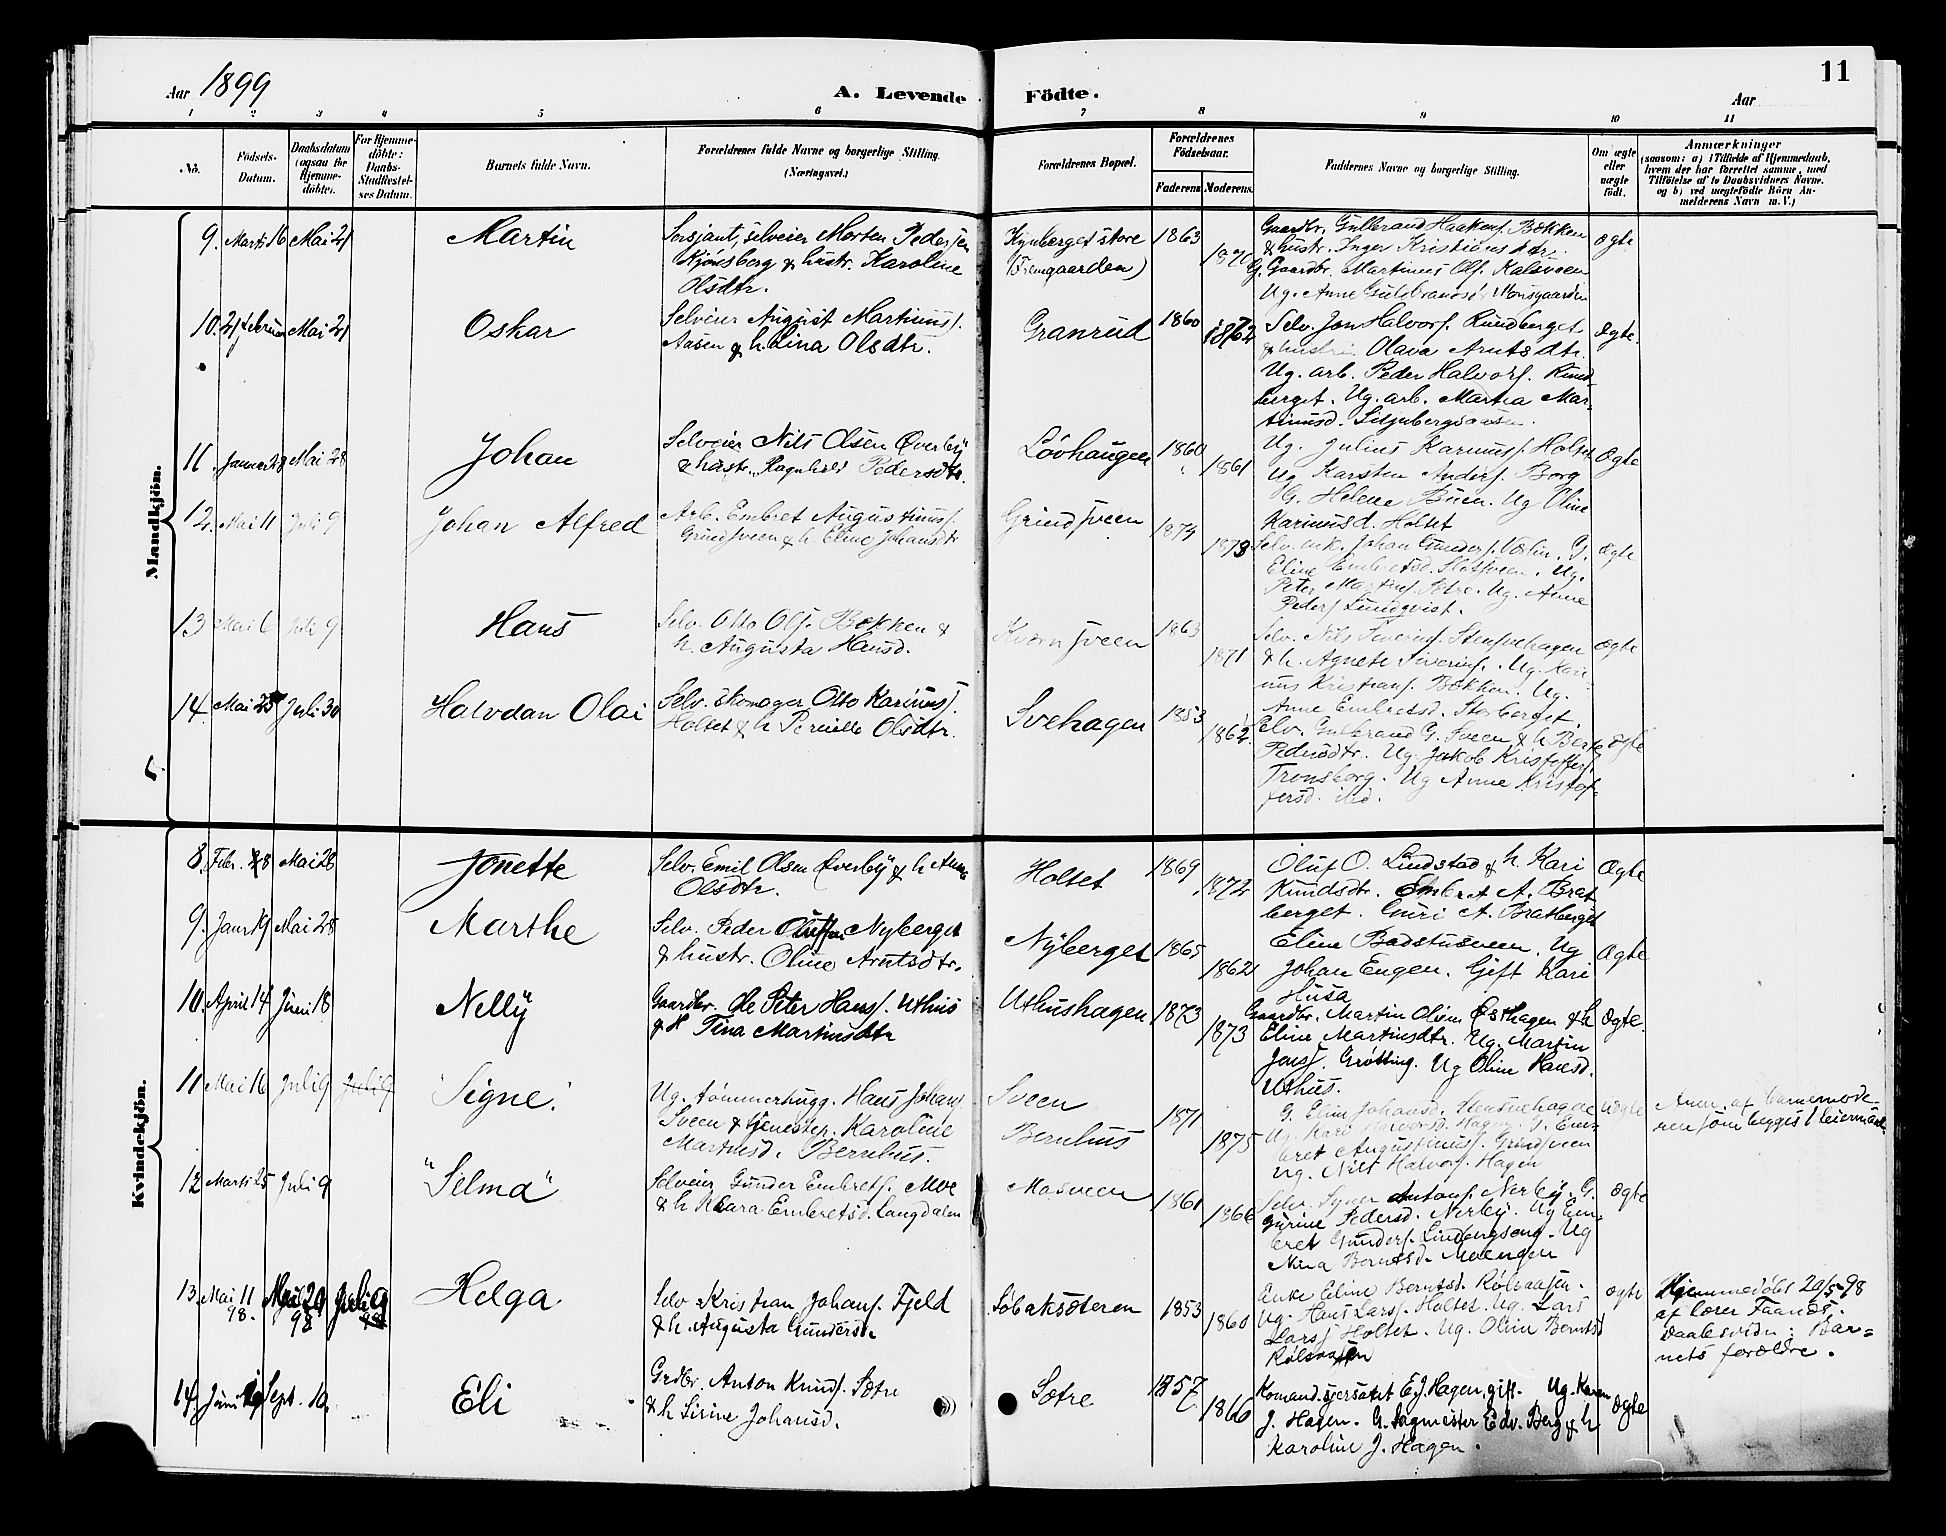 11
Aar 1899
A. Levende Födte.
Aar
1 2 3 4 5 6 7 8 9 10 11
No.
Födsels-Datum.
Daabsdatum (ogsaa for Hjemme-döbte).
For Hjemme-döbte: Daabs-Stadfestel-ses Datum.
Barnets fulde Navn.
Forældrenes fulde Navne og borgerlige Stilling. (Næringsvei.)
Forældrenes Bopæl.
Forældrenes Födselsaar.
Faderens Moderens
Faddernes Navne og borgerlige Stilling.
Om ægte eller uægte födt.
Anmærkninger
(saasom: a) i Tilfælde af Hjemmedaab,
hvem der har forrettet samme, med
Tilföielse af to Daabsvidners Navne,
og b) ved uægtefödte Börn An-
melderens Navn m. V.)
Mandkjön.
9. Marts 16 Mai 21
Martin
Sersjant, selveier Morten Pedersen
Kjønsberg & hustr. Karoline
Olsdtr.
Kynberget store
(Fremgaarden)
1863
1870
Gaardbr. Gulbrand Haakens. Bækken
& hustr. Inger Kristiansdtr.
G. Gaardbr. Martinus Ols. Kalsveen
Ug. Anne Guldbrandsd. Monsgaarden
ægte
10. 21 februar Mai 21
Oskar
Selveier August Martinus.
Aasen & h. Lina Olsdtr.
Granrud
1860
1862
Selv. Jon Halvors. Rundberget
& hustru Olava Arntsdtr.
Ug. arb. Peder Halvors. Rund-
berget. Ug. arb. Martea Mar-
tinusd.
Ægte.
11. Januar 28 Mai 28
Johan
Selveier Nils Olsen Øverby
& hustr. Ragnhild Pedersdtr.
Løvhaugen
1860
1861
Ug. Julius Karinus. Holtet
Ug Karsten Anders. Borg
G. Helene Buen. Ug Oline
Karinusd. Holtet
Ægte
12. Mai 11 Juli 9
Johan Alfred
Arb. Embret Augustinus.
Grindsveen & h. Eline Johansdtr
Grindsveen
1874
1873
Selv. enk. Johan Gunders. G.
Eline Embretsd. Ug.
Peter Martins. Sætre. Ug. Anne
Peders Lundqvist.
Ægte
13 Mai 6 Juli 9
Hans
Selv. Otto Ols. Bækken &
h. Augusta Hansd.
Kvernsveen
1863
1871
Selv. Nils Siverins. Stensvehagen
& h. Agnete Siverins. Ug. Kari-
nus Kristians. Bækken. Ug.
Anne Embretsd. Storberget.
Ægte
14. Mai 25 Juli 30
Halvdan Olai
Selv. skomager Otto Karinus.
Holtet & h Pernille Olsdtr.
Svehagen
1853
1862
Selv. Gulbrand G. Sveen & h Berte
Pedersdtr. Ug. Jakob Kristoffers.
Tronsberg. Ug Anne Kristof-
fersd. ibid.
Ægte
Kvindekjön.
8. Febr. 28 Mai 28
Jonette
Selv. Emil Olsen Øverby & h Anne
Olsdtr.
Holtet
1869
1872
Oluf O. Lindstad & h. Kari
Knudsdtr. Embret A. Brat
berget. Guri A. Bratberget
Ægte
9. Janr 19 Mai 28
Marthe
Selv. Peder Olufsen Nyberget
& hustr. Oline Arntsdtr.
Nyberget
1865
1862
Eline Badstusveen. Ug
Johan Engen. Gift Kari
Husa
Ægte
10. April 14 Juni 18
Nelly
Gaardbr. Ole Peter Hans. Uthus
& H Tina Martinsdtr
Uthushagen
1873
1873
Gaardbr. Martin Olsen Østhagen & h
Eline Martinsdtr. Ug. Martin
Jons. Grøtting. Ug Oline Hansd.
Uthus.
Ægte.
11 Mai 16 Juli 9 Juli 9
Signe.
Ug. tømmerhugg. Hans Johans.
Sveen & tjenestep. Karoline
Martinsd. Bernhus.
Sveen
Bernhus
1871
1875
G. Eline Johansd. Stensvehagen
Ug. Kari Halvorsd. Hagen. G. Em-
bret Augustinus. Grindsveen
Ug. Nils Halvors. Hagen
uægte
Anm. af barnemode-
ren som begges 1 leiermaal
12 Marts 25 Juli 9
"Selma"
Selveier Gunder Embrets. Moe
& h Klara Embretsd. Langdalen
Mosveen
1861
1866
Selv. Syver Antons. Nerby. G.
Gurine Pedersd. Nerby. Ug Em-
bret Gunders. Ug
Mina Berntsd. Moengen
Ægte
13. Mai 11 98. Mai 20 98 Juli 9 98
Helga.
Selv. Kristian Johans. Fjeld
& h. Augusta Gundersd.
Søbaksæteren
1853
1860
Enke Eline Berntsd. Rølsaasen.
Ug. Hans Lars. Holtet. Ug. Lars
Lars. Holtet. Ug. Oline Berntsd
Rølsaasen
Ægte
Hjemmedøbt 20/5-98
af lærer Faanes.
daabsvidn: Bar-
nets forældre.
14. Juni 19 Sept. 10.
Eli
Grdbr. Anton Knuds. Sætre
& h Sirine Johansd.
Sætre
1857
1866
Komand.sersjant E. J. Hagen, gift. Ug. Karen
J. Hagen. G. Sagmester Edv. Berg & h
Karoline J. Hagen.
Ægte